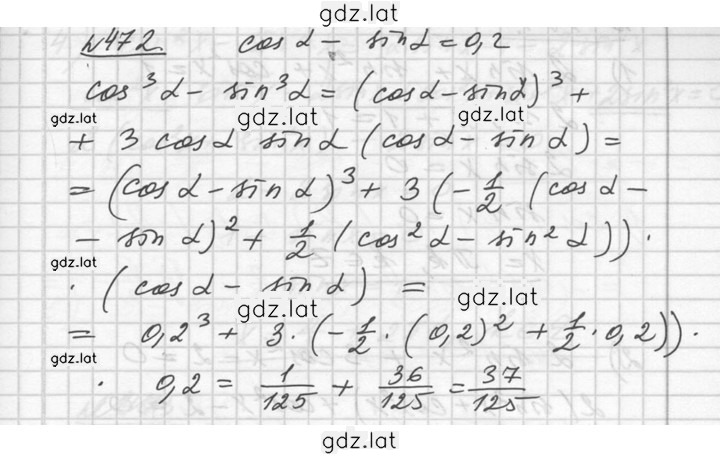 gdz.lat
№472. cos α - sin α = 0,2
cos³ α - sin³ α = (cos α - sin α)³ +
gdz.lat gdz.lat gdz.lat
+ 3 cos α sin α (cos α - sin α) =
= (cos α - sin α)³ + 3 (- 1/2 (cos α -
- sin α)² + 1/2 (cos² α - sin² α)) ·
gdz.lat
· (cos α - sin α) =
gdz.lat gdz.lat
= 0,2³ + 3 · (- 1/2 · (0,2)² + 1/2 · 0,2)) ·
gdz.lat
· 0,2 = 1/125 + 36/125 = 37/125
gdz.lat